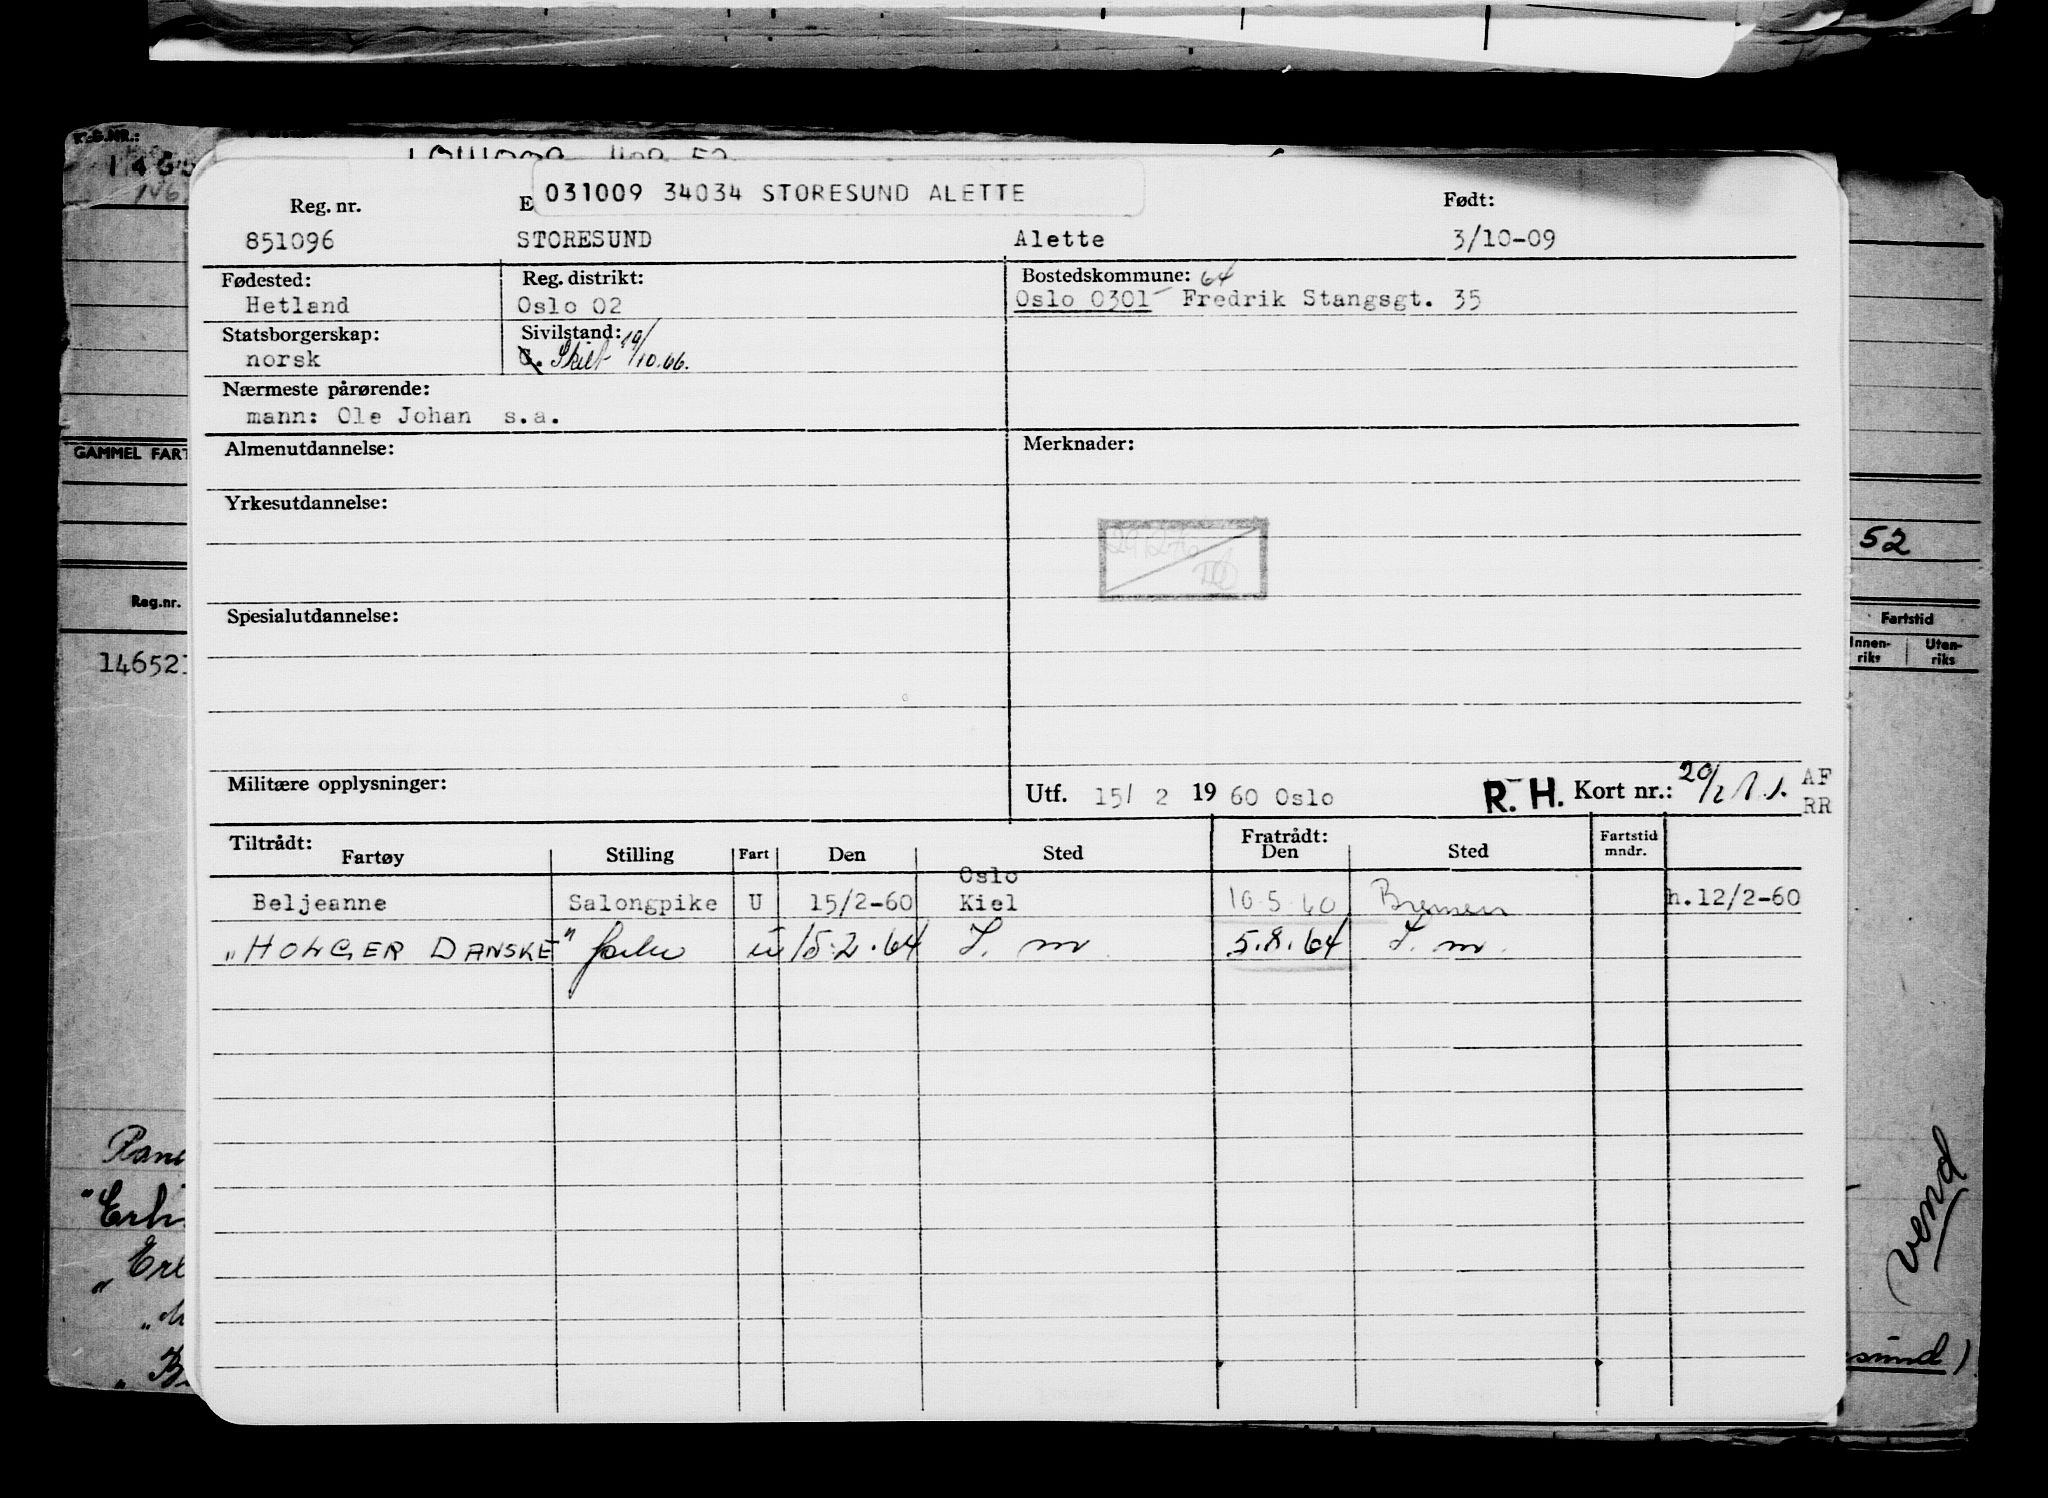 031009 34034 STORESUND ALETTE
Reg. nr. E Født:
851096 STORESUND Alette 3/10-09
Fødested: Reg. distrikt: Bostedskommune: 64
Hetland Oslo 02 Oslo 0301 Fredrik Stangsgt. 35
Statsborgerskap: Sivilstand:
norsk G. Skilt 19/10.66.
Nærmeste pårørende:
mann: Ole Johan s.a.
Almenutdannelse: Merknader:
Yrkesutdannelse:
Spesialutdannelse:
Militære opplysninger: Utf. 15/ 2 19 60 Oslo R. H. Kort nr.: AF
RR
Tiltrådt: Fratrådt:
Fartøy Stilling Fart Den Sted Den Sted Fartstid mndr.
Oslo
Beljeanne Salongpike U 15/2-60 Kiel 10.5.60 Bremen h.12/2-60
"HOLGER DANSKE" u 15.2.64 S. m. 5.8.64 S. m.
GAMMEL FART
52
Reg.nr. Fartstid
Innen-riks Uten-riks
14652
vend